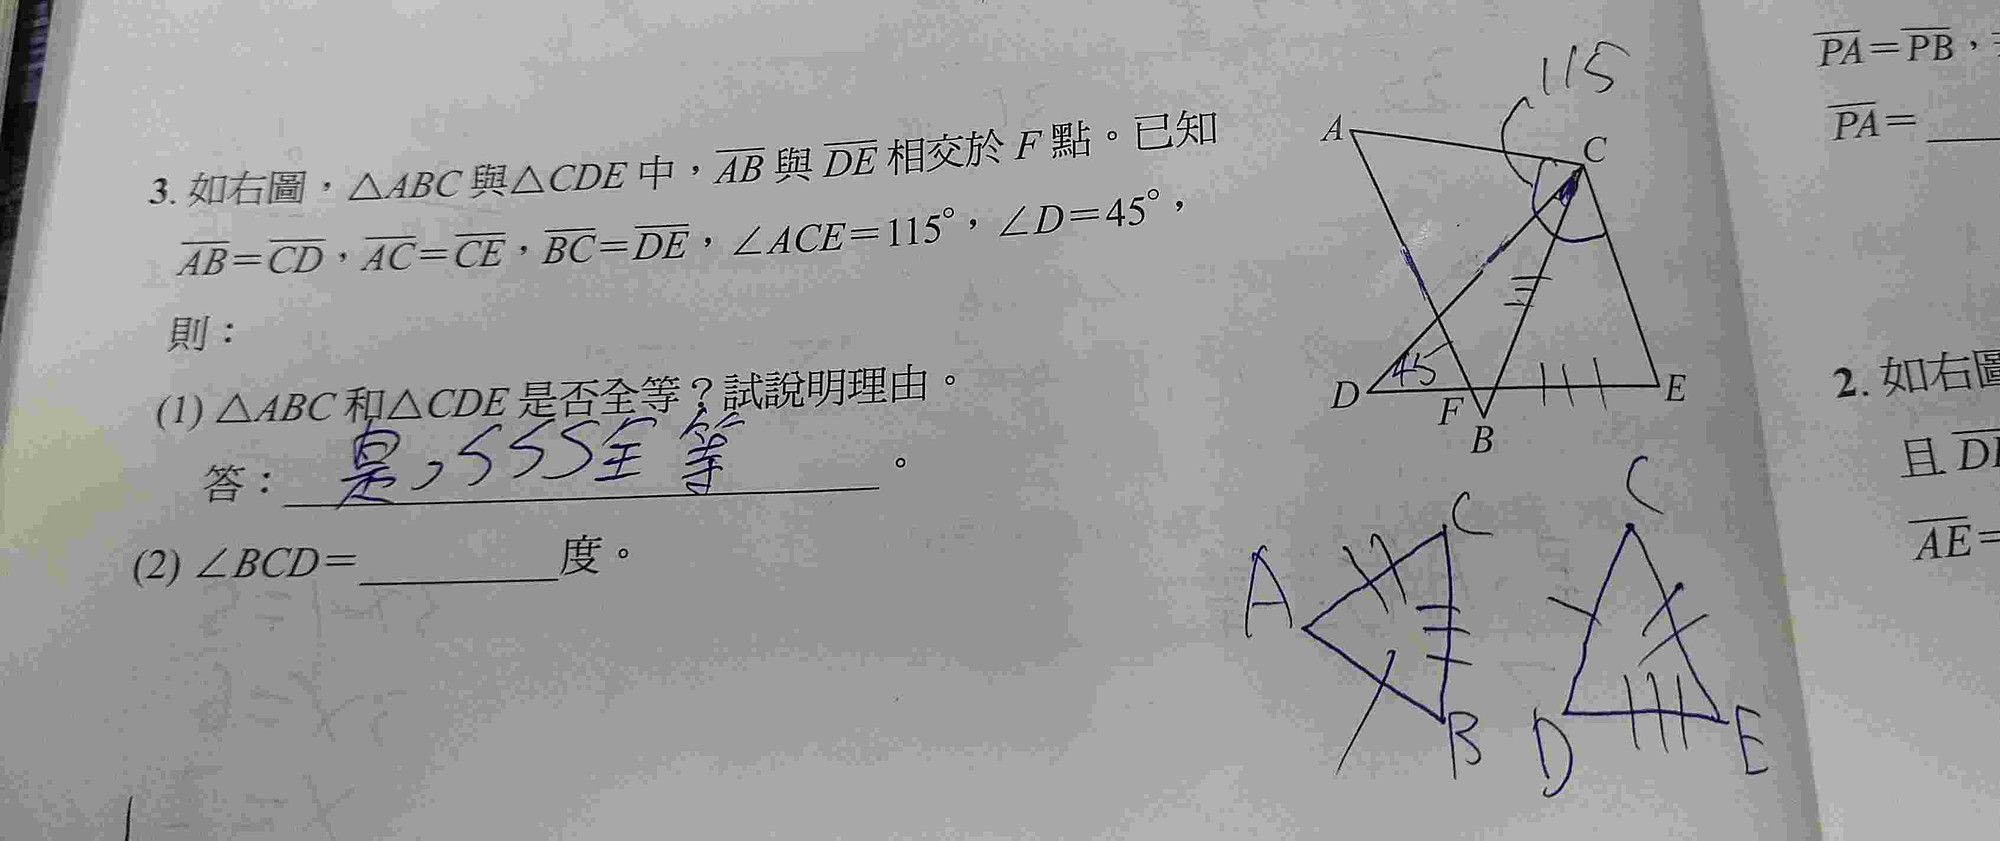 3. 如右圖，△ABC 與△CDE 中，AB 與 DE 相交於 F 點。已知
AB＝CD，AC＝CE，BC＝DE，∠ACE＝115°，∠D＝45°，
則：
(1) △ABC 和△CDE 是否全等？試說明理由。
答：是，SSS全等。
(2) ∠BCD＝________度。
115
A
C
45
D
F
B
E
A
C
B
C
D
E
PA＝PB，
PA＝____
2. 如右圖
且 D
AE＝